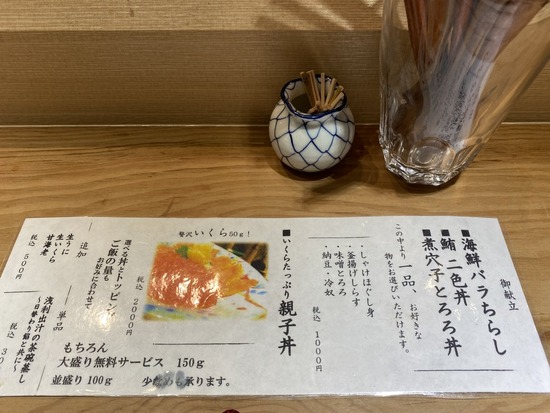 御献立
■海鮮バラちらし
■鮪二色丼
■煮穴子とろろ丼
この中より一品、お好きな
物をお選びいただけます。
・しゃけほぐし身
・釜揚げしらす
・味噌とろろ
・納豆・冷奴
税込 1000円
■いくらたっぷり親子丼
贅沢いくら50g!
税込 2000円
選べる丼とトッピング
ご飯の量もお好みに合わせて
もちろん
大盛り無料サービス 150g
並盛り 100g 少なめも承ります。
追加
生うに
生いくら
甘海老
税込 500円
単品
浅利出汁の茶碗蒸し
税込